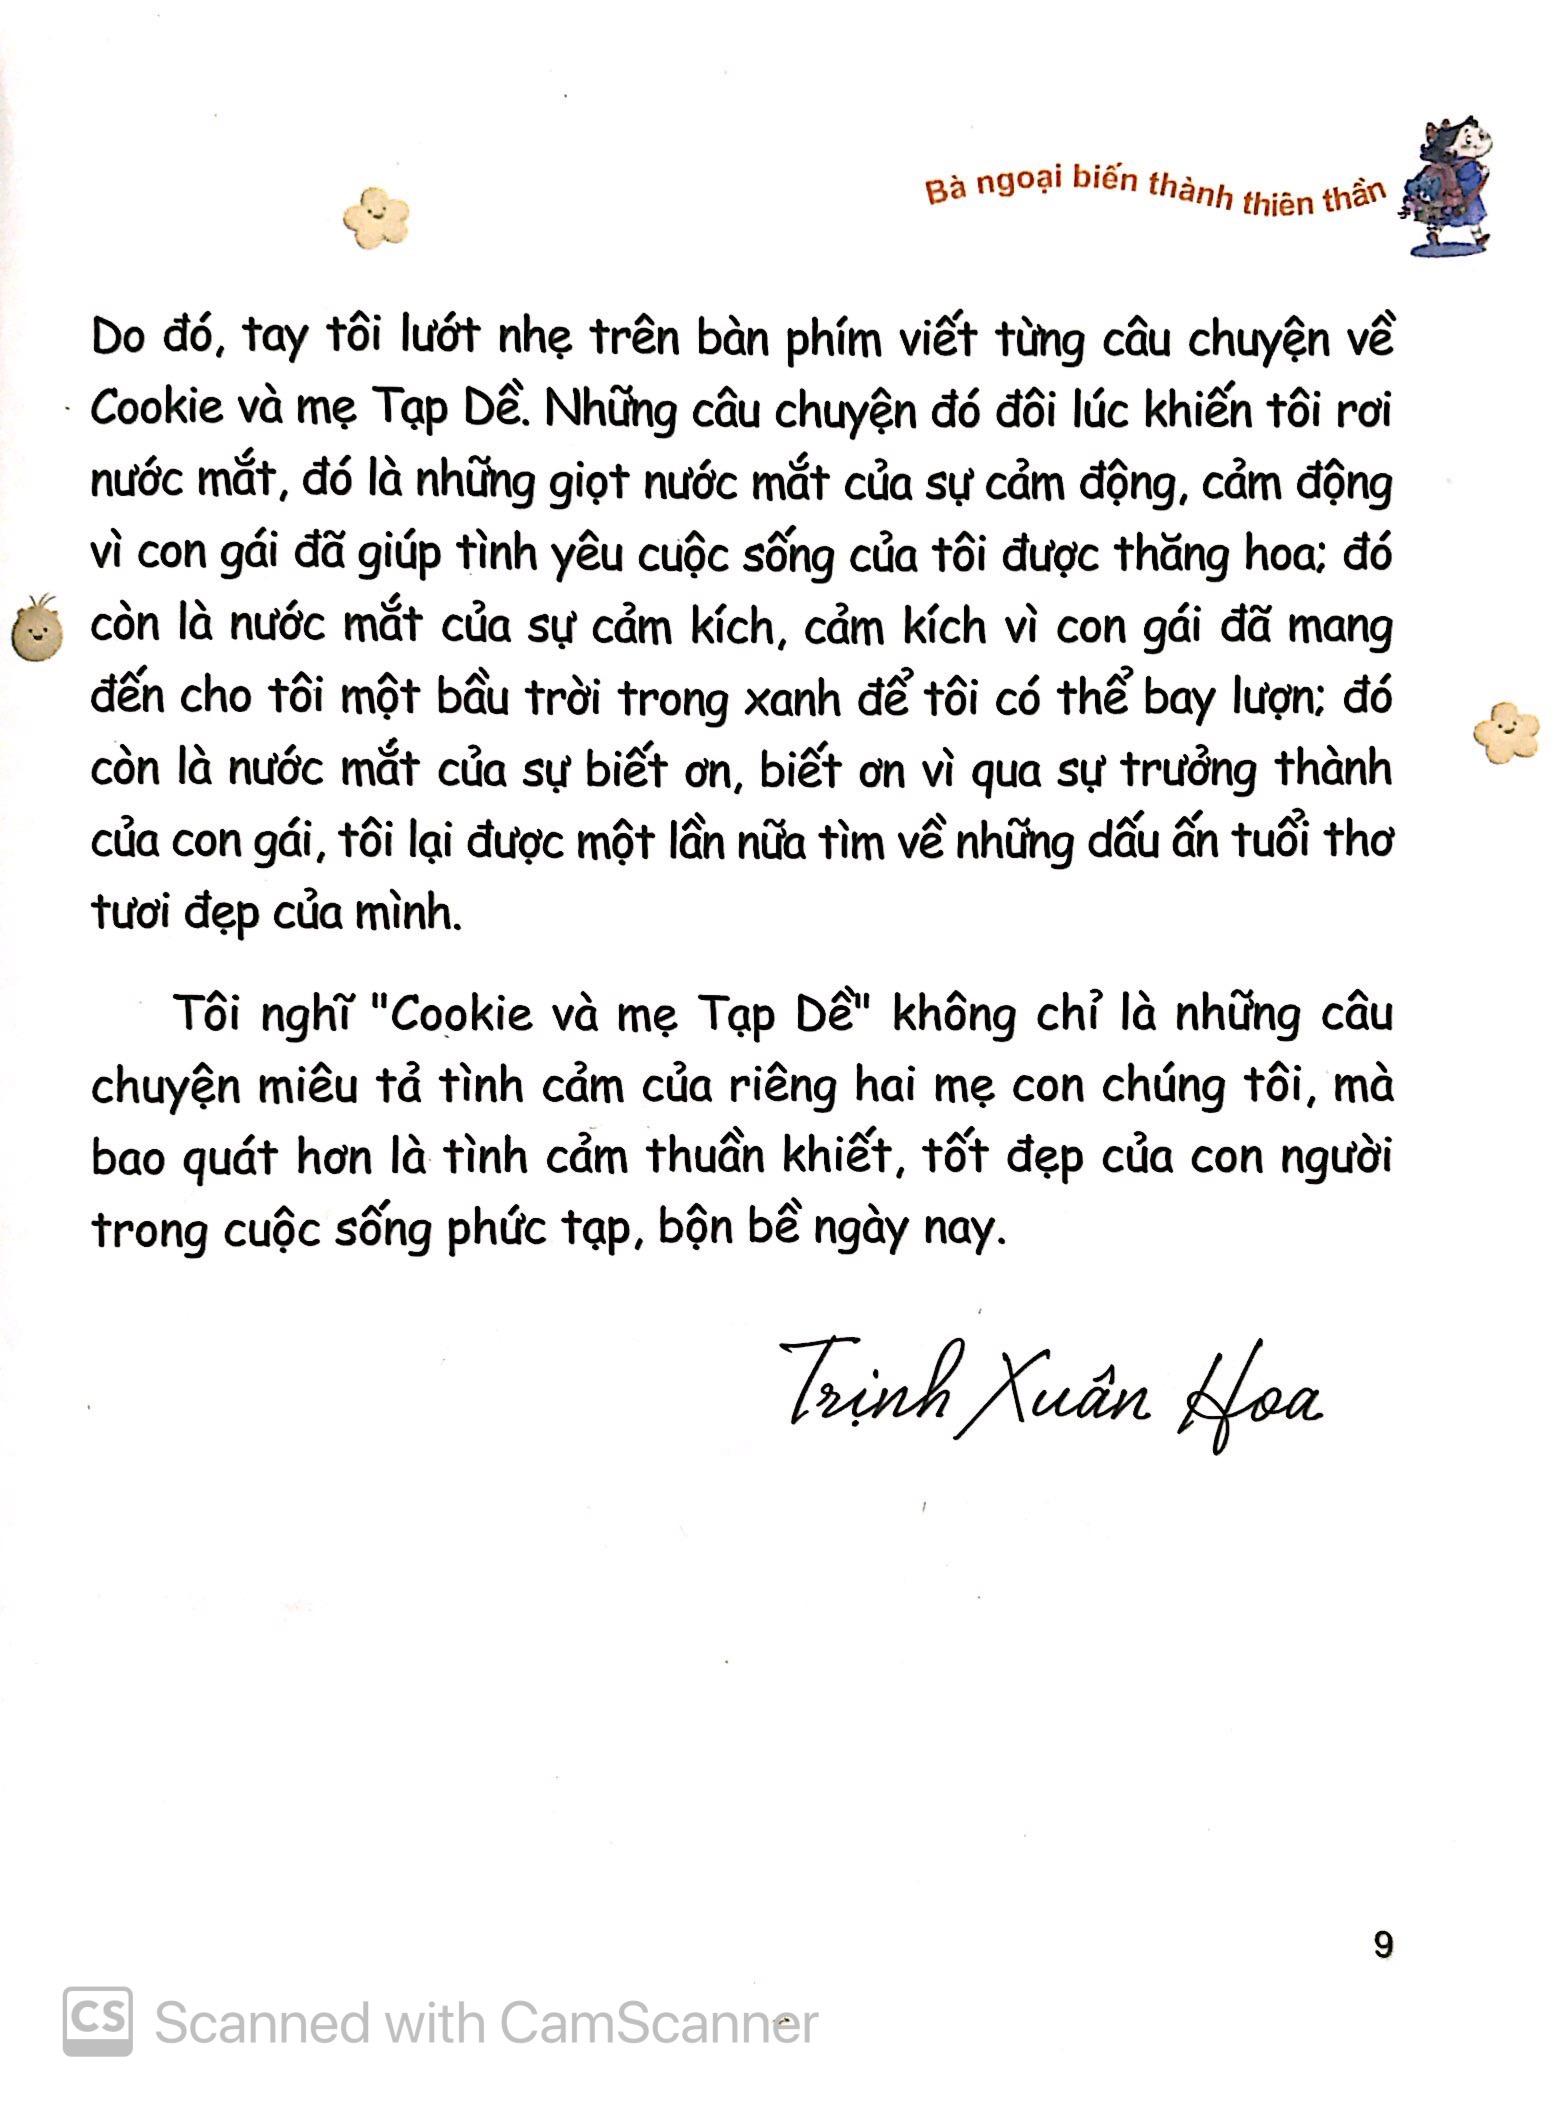 Bà ngoại biến thành thiên thần
Do đó, tay tôi lướt nhẹ trên bàn phím viết từng câu chuyện về
Cookie và mẹ Tạp Dề. Những câu chuyện đó đôi lúc khiến tôi rơi
nước mắt, đó là những giọt nước mắt của sự cảm động, cảm động
vì con gái đã giúp tình yêu cuộc sống của tôi được thăng hoa; đó
còn là nước mắt của sự cảm kích, cảm kích vì con gái đã mang
đến cho tôi một bầu trời trong xanh để tôi có thể bay lượn; đó
còn là nước mắt của sự biết ơn, biết ơn vì qua sự trưởng thành
của con gái, tôi lại được một lần nữa tìm về những dấu ấn tuổi thơ
tươi đẹp của mình.
Tôi nghĩ "Cookie và mẹ Tạp Dề" không chỉ là những câu
chuyện miêu tả tình cảm của riêng hai mẹ con chúng tôi, mà
bao quát hơn là tình cảm thuần khiết, tốt đẹp của con người
trong cuộc sống phức tạp, bộn bề ngày nay.
Trịnh Xuân Hoa
9
CS Scanned with CamScanner